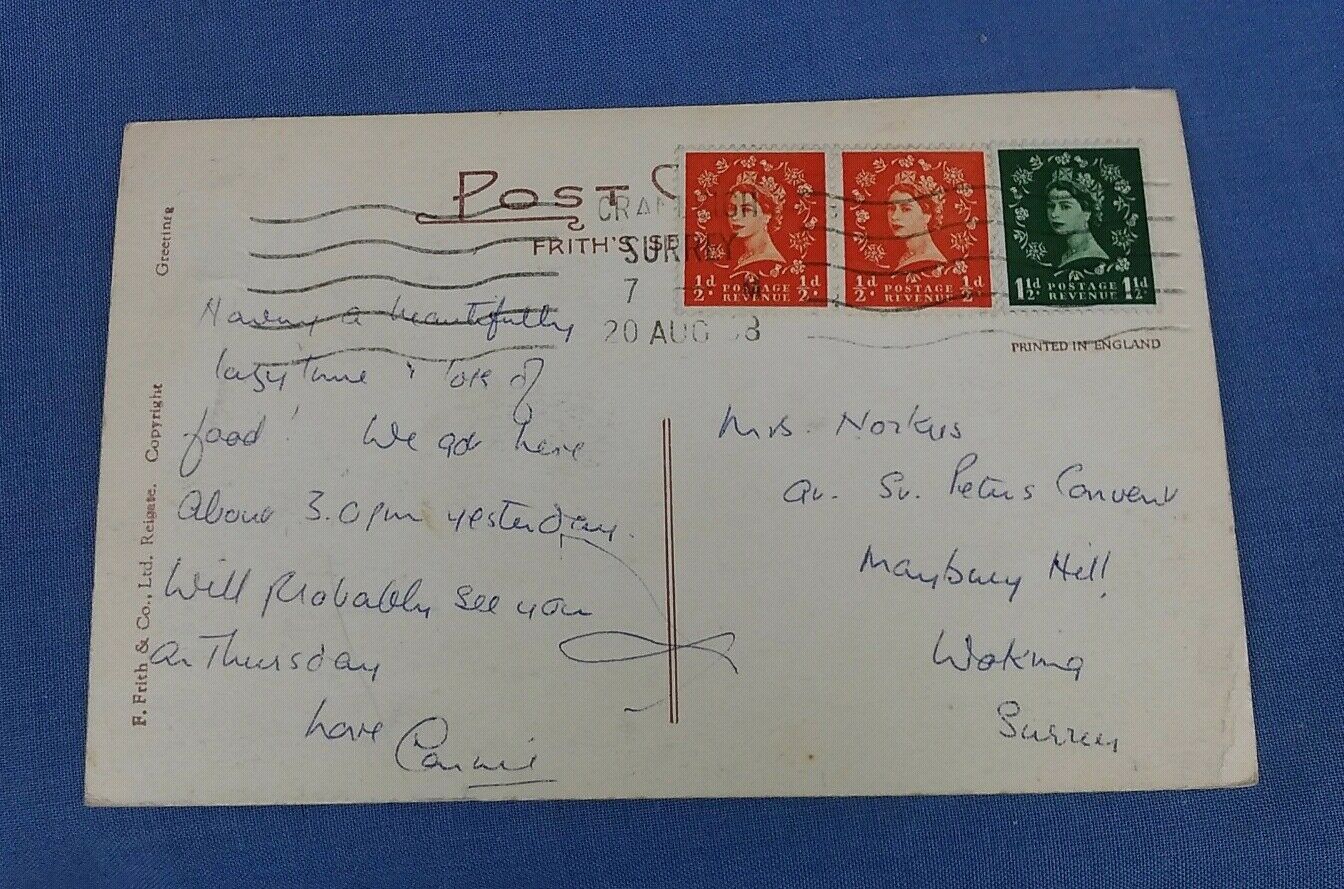 POST C
FRITH'S SE
CRANLEIGH
SURREY
7
20 AUG
½d. ½d.
POSTAGE
REVENUE
½d. ½d.
POSTAGE
REVENUE
1½d. 1½d.
POSTAGE
REVENUE
PRINTED IN ENGLAND
Greeting
F. Frith & Co., Ltd. Reigate. Copyright
Having a beautifully
lazy time & lots of
food! We got here
About 3.0 pm yesterday.
Will probably see you
on Thursday
Love Connie
Mrs. Norkus
at. St. Peters Convent
Maybury Hill,
Woking
Surrey